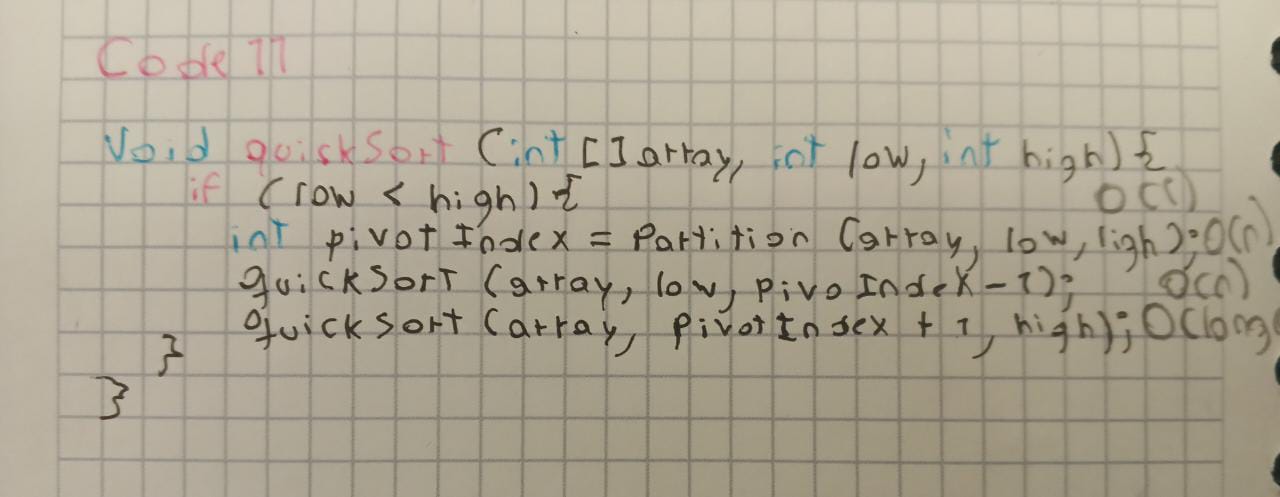 Code 11
Void quickSort (int [] array, int low, int high) {
if (low < high) { O(1)
int pivot Index = Partition (array, low, ligh); O(n)
quickSort (array, low, pivo Index - 1); O(n)
quickSort (array, pivotIndex + 1, high); O(long
}
}